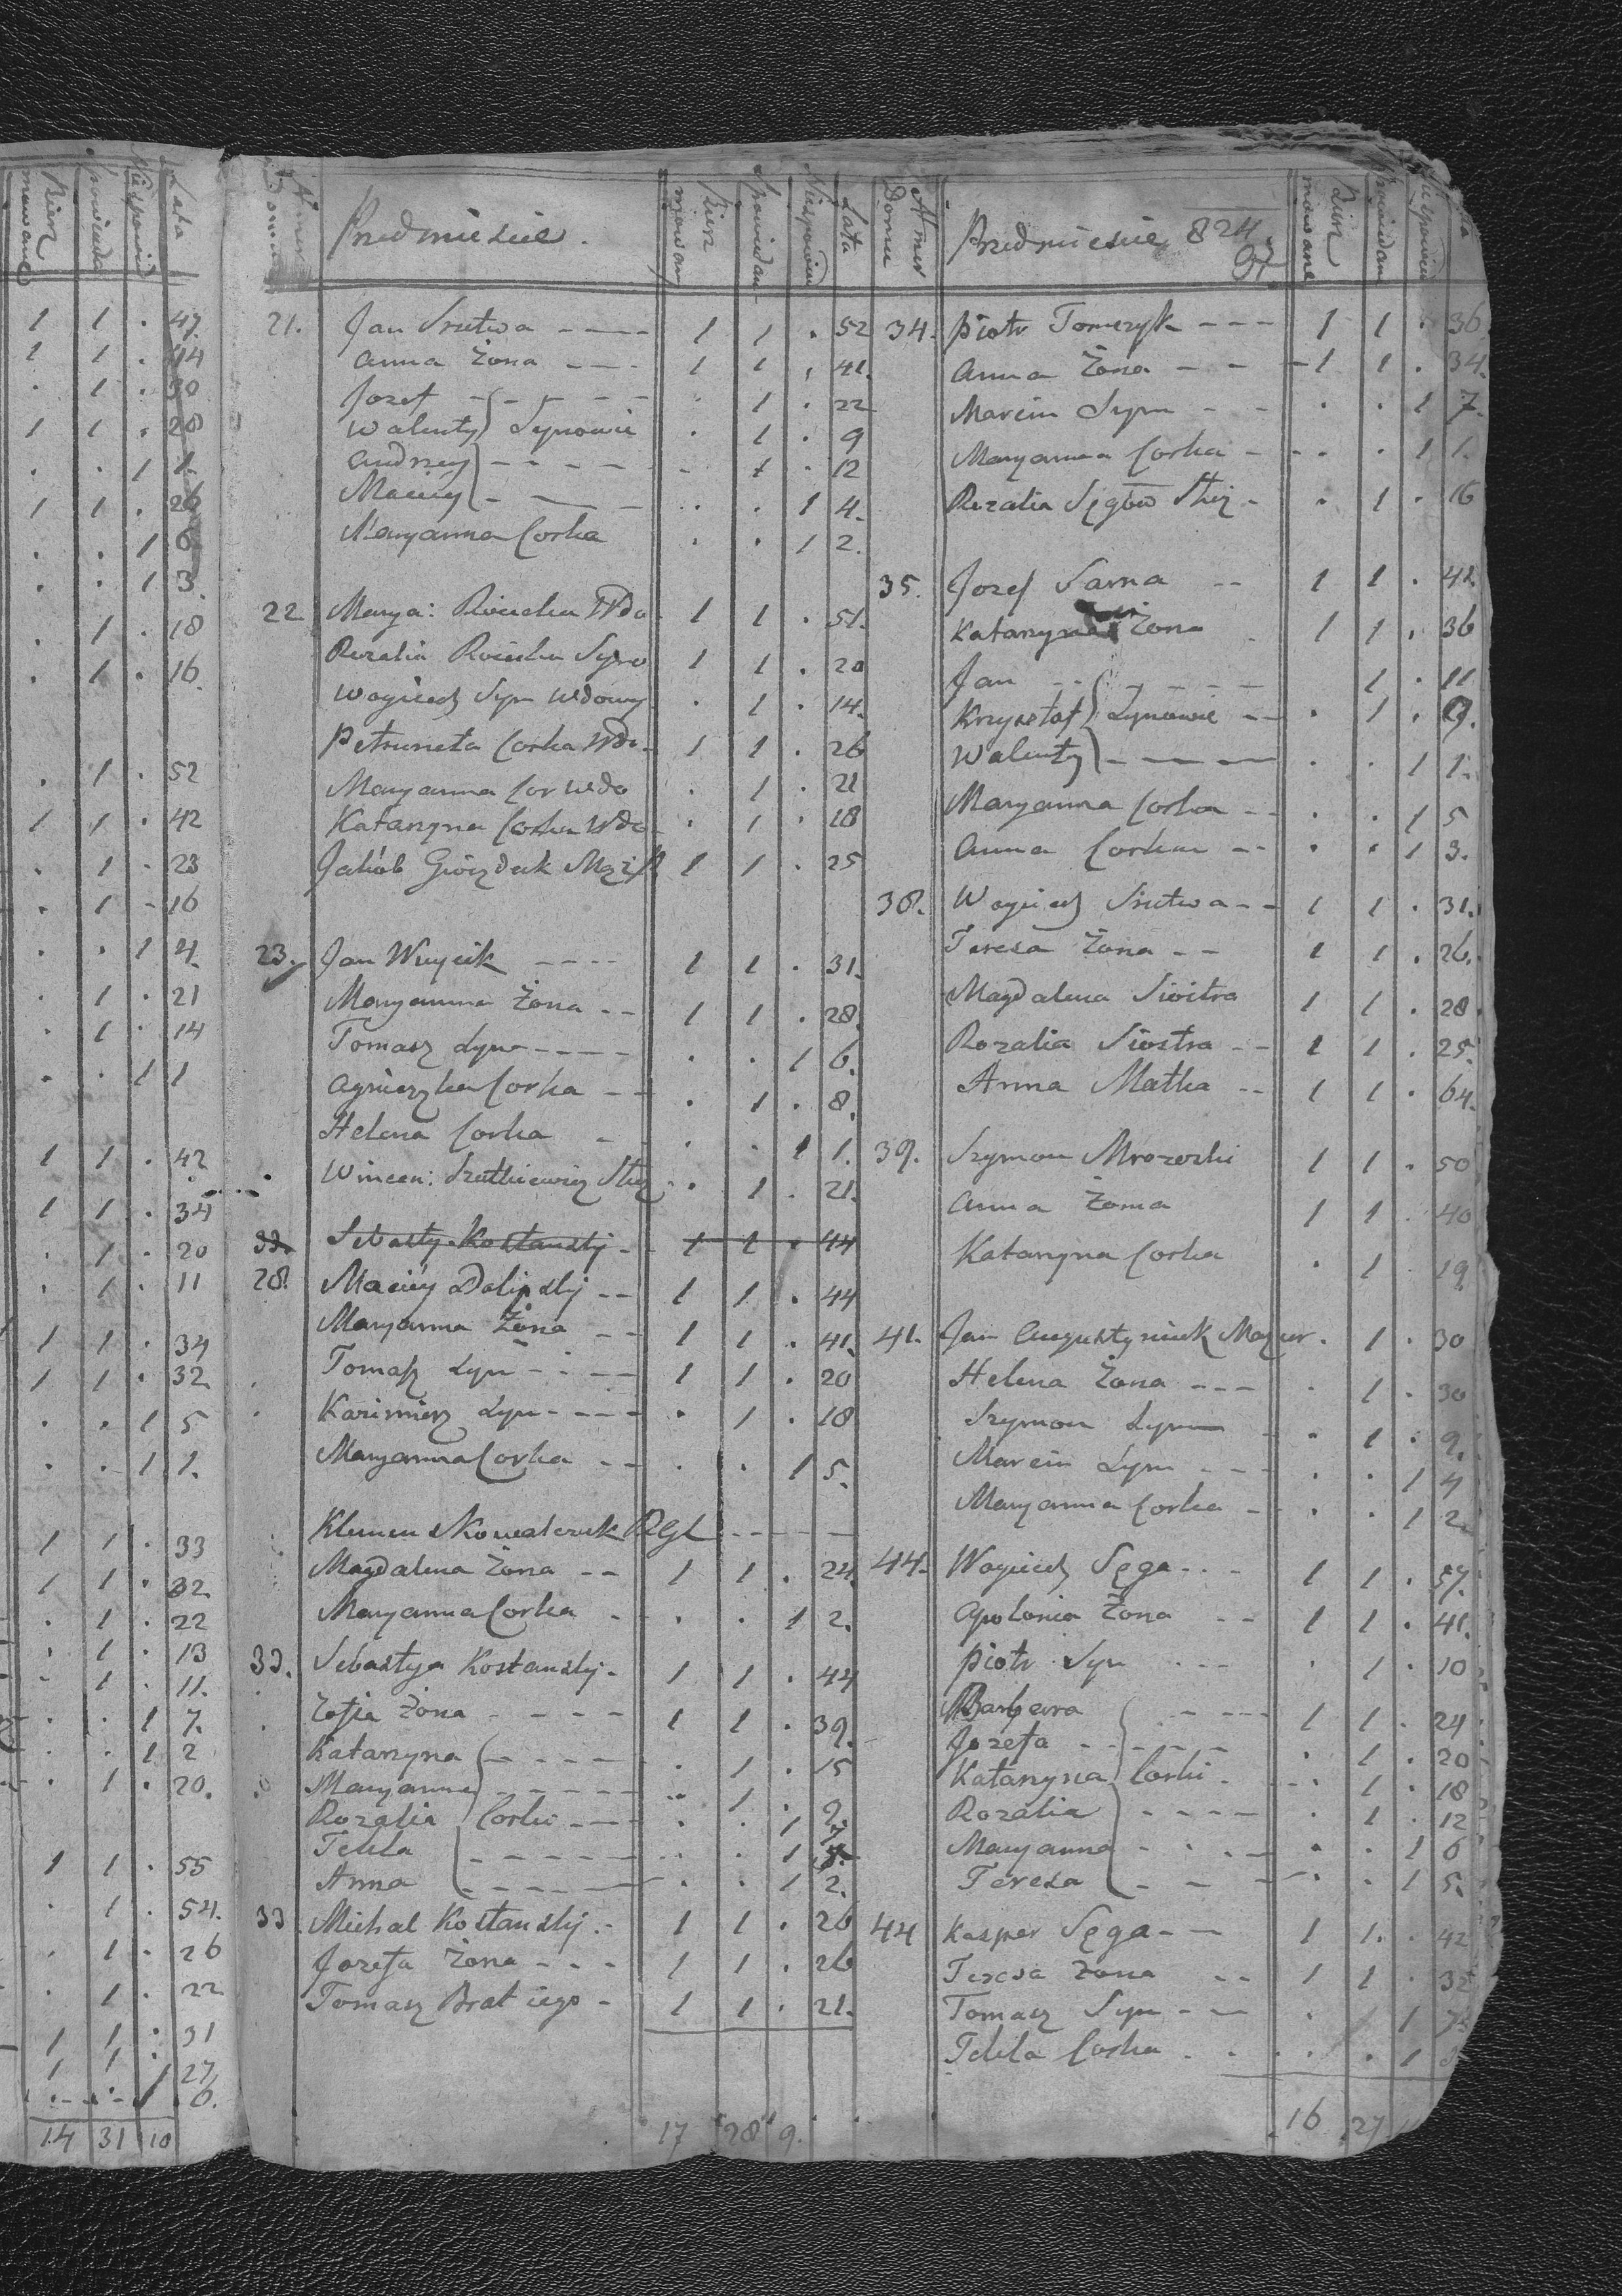 Lata
Niespowied
spowieda
Bierz
mowane
1 1 . 47.
1 1 . 44
. 1 . 30
1 1 . 28
. . 1 1.
1 1 . 26
. . 1 6
. . 1 3.
. 1 . 18
. 1 . 16.
. 1 . 52
1 1 . 42
. 1 . 23
. 1 - 16
. . 1 4.
. 1 . 21
. 1 . 14
. . 1 1
1 1 . 42
1 1 . 34
. 1 . 20
. 1 . 11
1 1 . 34
1 1 . 32
. . 1 5
. . 1 1.
1 1 . 33
1 1 . 32
. 1 . 22
. 1 . 13
. 1 . 11.
. . 1 7.
. . 1 2
. 1 . 20.
1 1 . 55
. 1 . 54.
. 1 . 26
. 1 . 22
1 1 . 31
1 1 . 27
. . 1 6.
14 31 10
Numer Domu
Przedmieście.
Bierz mowan
Spowiedan
Niespowied
Lata
21. Jan Srutwa ---- 1 1 . 52
Anna Żona ---- 1 1 . 41.
Jozef ----- . 1 . 22
Walenty Synowie . 1 . 9
Andrzey ----- . 1 . 12
Maciey - --- . . 1 4.
Maryanna Corka . . 1 2.
22 Marya: Wdo 1 1 . 51.
Rozalia Syno 1 1 . 20
Woyciech Syn Wdowy . 1 . 14.
Petruneta Corka Wdo. 1 1 . 26
Maryanna Cor Wdo . 1 . 21
Katarzyna Corka Wdo . 1 . 18
Jakób 1 1 . 25
23. Jan Wuycik ---- 1 1 . 31.
Maryanna Żona -- 1 1 . 28.
Tomasz Syn ---- . . 1 6.
Agnieszka Corka -- . 1 . 8.
Helena Corka - . . 1 1.
Wincen: Szutkiewicz Sluz . 1 . 21.
33. Sebasty. Kostanski - 1 1 . 44
28. Maciey Dolipski -- 1 1 . 44
Maryanna Żona -- 1 1 . 41.
Tomasz Syn ---- 1 1 . 20
Kazimierz Syn ---- . 1 . 18
Maryanna Corka -- . . 1 5.
Klemen Kowalczuk -----
Magdalena Żona -- 1 1 . 24.
Maryanna Corka - . . 1 2.
33. Sebastya Kostanski - 1 1 . 44
Zofia Żona ---- 1 1 . 39.
Katarzyna ---- . 1 . 15
Maryanna ----- . 1 . 9.
Rozalia Corki ---- . . 1 7
Tekla ------ . . 1
Anna ------ . . 1 2.
33 Michal Kostanski .- 1 1 . 26
Jozefa Żona --- 1 1 . 26
Tomasz Brat iego - 1 1 . 21.
17 28 9.
Numer Domu
Przedmieście, 824.
Bierz mowane
Spowiedan
Niespowied
Lata
34. Piotr Tomczyk --- 1 1 . 36.
Anna Żona --- 1 1 . 34.
Marcin Syn -- . . 1 7.
Maryanna Corka - . . 1 1.
Rozalia - . 1 . 16
35. Jozef Sarna -- 1 1 . 42.
Katarzyna Żona . 1 1 . 36
Jan ------ 1 . 11
Krzysztof Synowie -- . 1 . 9.
Walenty ----- . . 1 1.
Maryanna Corka -- . . 1 5
Anna Corka -- . . 1 3.
38. Woyciech Srutwa -- 1 1 . 31.
Teresa Żona -- 1 1 . 26.
Magdalena Siostra 1 1 . 28
Rozalia Siostra -- 1 1 . 25.
Anna Matka -- 1 1 . 64.
39. Szymon Mrozoski 1 1 . 50
Anna Żona 1 1 . 40
Katarzyna Corka . 1 . 19
41. Jan Augustyniuk Mazur . 1 . 30
Helena Żona --- . 1 . 30
Szymon Syn - . 1 . 9.
Marcin Syn --- . . 1 4
Maryanna Corka - . . 1 2
44. Woyciech Sęga -- 1 1 . 57.
Apolonia Żona -- 1 1 . 41.
Piotr Syn --- . 1 . 10
Barbara ---- 1 1 . 24
Jozefa ----- . 1 . 20
Katarzyna Corki - . 1 . 18
Rozalia ---- . 1 . 12
Maryanna ---- . . 1 6
Teresa --- . . 1 5.
44 Kasper Sęga -- 1 1 . 42
Teresa Żona -- 1 1 . 32
Tomasz Syn -- . . 1 7.
Tekla Corka . . . 1
16 27